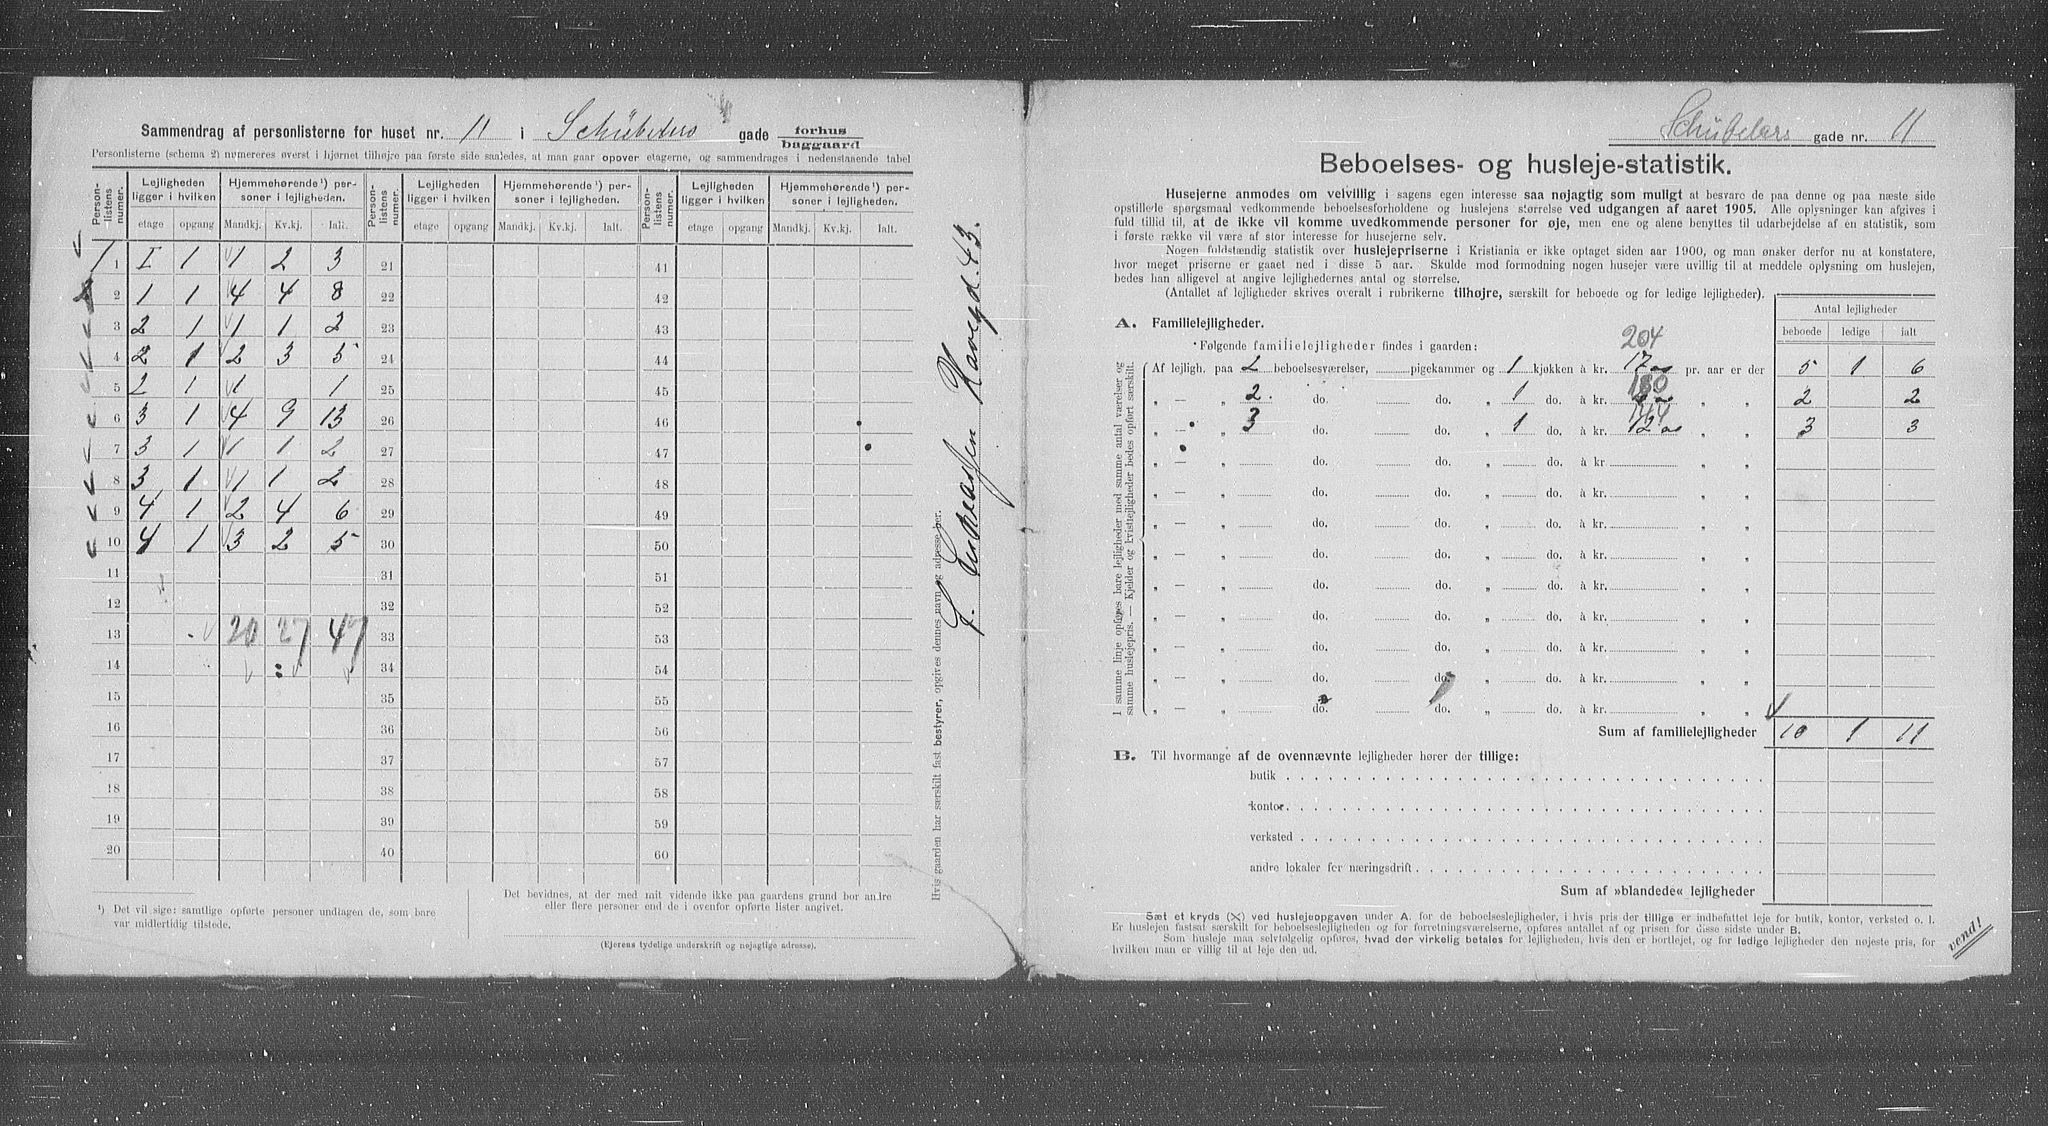 Sammendrag af personlisterne for huset nr. 11 i Schübelers gade forhus
baggaard
Personlisterne (schema 2) numereres øverst i hjørnet tilhøjre paa første side saaledes, at man gaar opover etagerne, og sammendrages i nedenstaaende tabel
Person-listens numer. Lejligheden ligger i hvilken Hjemmehørende¹) personer i lejligheden. Person-listens numer. Lejligheden ligger i hvilken Hjemmehørende¹) personer i lejligheden. Person-listens numer. Lejligheden ligger i hvilken Hjemmehørende¹) personer i lejligheden.
etage opgang Mandkj. Kv.kj. Ialt. etage opgang Mankj. Kv.kj. Ialt. etage opgang Mandkj. Kv.kj. Ialt.
1 I 1 1 2 3 21 41
2 1 1 4 4 8 22 42
3 2 1 1 1 2 23 43
4 2 1 2 3 5 24 44
5 2 1 1 1 25 45
6 3 1 4 9 13 26 46
7 3 1 1 1 2 27 47
8 3 1 1 1 2 28 48
9 4 1 2 4 6 29 49
10 4 1 3 2 5 30 50
11 31 51
12 32 52
13 20 27 47 33 53
14 34 54
15 35 55
16 36 56
17 37 57
18 38 58
19 39 59
20 40 60
¹) Det vil sige: samtlige opførte personer undtagen de, som bare
var midlertidig tilstede.
Det bevidnes, at der med mit vidende ikke paa gaardens grund bor andre
eller flere personer end de i ovenfor opførte lister angivet.
(Ejerens tydelige underskrift og nøjagtige adresse).
Hvis gaarden har særskilt fast bestyrer, opgives dennes navn og adresse her.
Havegd. 43.
Schübelers gade nr. 11
Beboelses- og husleje-statistik.
Husejerne anmodes om velvillig i sagens egen interesse saa nøjagtig som muligt at besvare de paa denne og paa næste side
opstillede spørgsmaal vedkommende beboelsesforholdene og huslejens størrelse ved udgangen af aaret 1905. Alle oplysninger kan afgives i
fuld tillid til, at de ikke vil komme uvedkommende personer for øje, men ene og alene benyttes til udarbejdelse af en statistik, som
i første række vil være af stor interesse for husejerne selv.
Nogen fuldstændig statistik over huslejepriserne i Kristiania er ikke optaget siden aar 1900, og man ønsker derfor nu at konstatere,
hvor meget priserne er gaaet ned i disse 5 aar. Skulde mod formodning nogen husejer være uvillig til at meddele oplysning om huslejen,
bedes han alligevel at angive lejlighedernes antal og størrelse.
(Antallet af lejligheder skrives overalt i rubrikerne tilhøjre, særskilt for beboede og for ledige lejligheder).
Antal lejligheder
beboede ledige ialt
A. Familielejligheder.
Følgende familielejligheder findes i gaarden:
I samme linje opføres bare lejligheder med samme antal værelser og
samme huslejepris. — Kjelder og kvistlejligheder bedes opført særskilt.
204
Af lejligh. paa 2 beboelsesværelser, pigekammer og 1 kjøkken à kr. 17 pr. aar er der 5 1 6
180
„ — „ 2. do. do. „ 1 do. à kr. „ „ 2 2
144
„ — „ 3 do. do. „ 1 do. à kr. 12 „ „ 3 3
„ — „ do. do. „ do. à kr. „ „
„ — „ do. do. „ do. à kr. „ „
„ — „ do. do. „ do. à kr. „ „
„ — „ do. do. „ do. à kr. „ „
„ — „ do. do. „ do. à kr. „ „
„ — „ do. do. „ do. à kr. „ „
„ — „ do. do. „ do. à kr. „ „
„ — „ do. do. „ do. à kr. „ „
„ — „ do. do. „ do. à kr. „ „
Sum af familielejligheder 10 1 11
B. Til hvormange af de ovennævnte lejligheder hører der tillige:
butik
kontor
verksted
andre lokaler for næringsdrift
Sum af »blandede« lejligheder
Sæt et kryds (X) ved huslejeopgaven under A. for de beboelseslejligheder, i hvis pris der tillige er indbefattet leje for butik, kontor, verksted o. l.
Er huslejen fastsat særskilt for beboelseslejligheden og for forretningsværelserne, opføres antallet af og prisen for disse sidste under B.
Som husleje maa selvfølgelig opføres, hvad der virkelig betales for lejligheden, hvis den er bortlejet, og for ledige lejligheder den nøjeste pris, for
hvilken man er villig til at leje den ud.
vend!